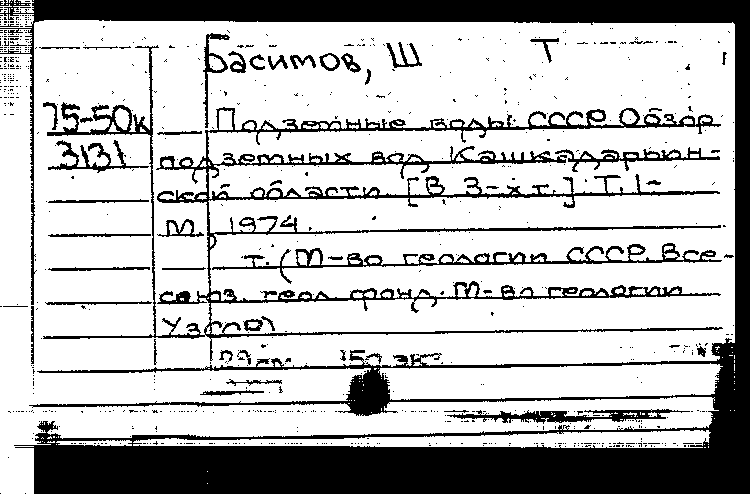 Басимов, Ш Т
75-50к Подземные воды СССР Обзор
3131 подземных вод Кашкадарьин-
ской области [В 3-х т.] Т. 1-
М., 1974.
т. (М-во геологии СССР. Все-
союз. геол фонд. М-во геологии
УзССР)
150 экз